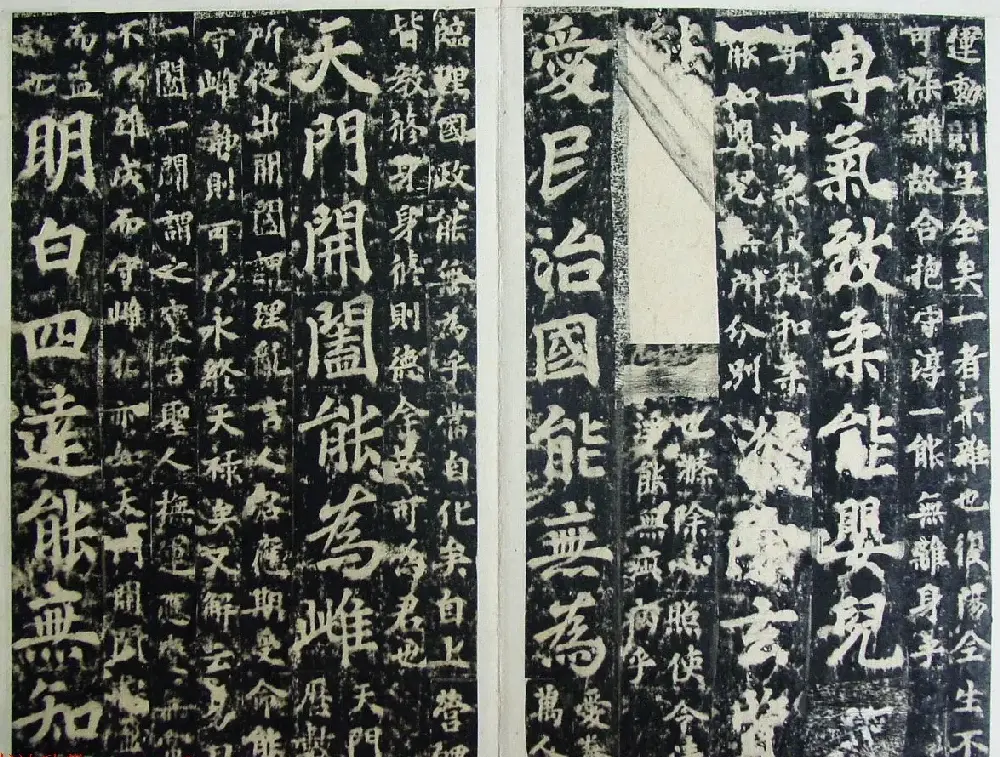 運動則生全矣一者不雜也復陽全生不
可染雜故令抱守淳一能無離身乎
專氣致柔能嬰兒
專一沖氣使致和柔
能如嬰兒無所分別
滌除玄覽
世滌除心照使令清
淨能無疵病乎
愛民治國能無為
愛養
萬人
臨理國政能無為乎當自化矣自上營魄
皆教修身身修則德全故可為君也
天門開闔能為雌
天門
歷數
所從出開闔謂理亂言人君應期受命能
守雌靜則可以永終天祿矣又解云易曰
一闔一闢謂之變言聖人撫運應變無
不以雄成而守雌牝亦如天門開闔虛盈
而益
謙也
明白四達能無知